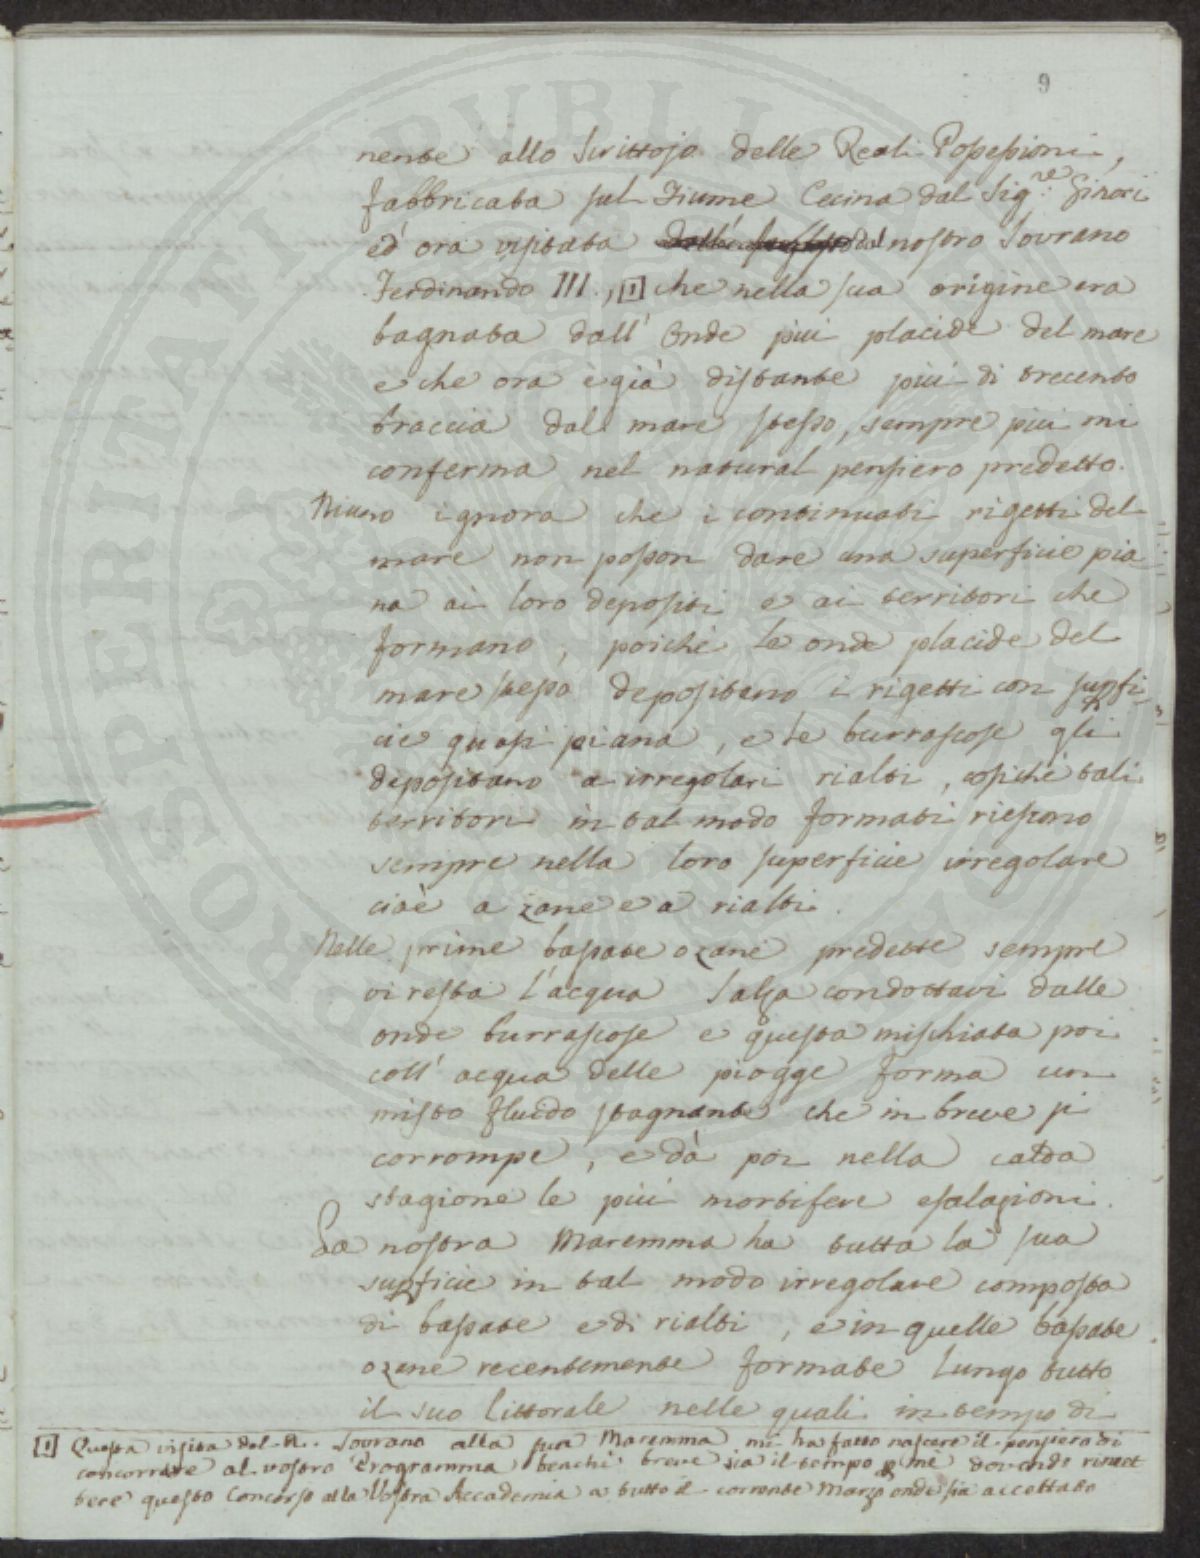 9
nente allo Scrittojo delle Reali Possessioni,
fabbricata sul Fiume Cecina dal Sig.re Ginori
ed ora visitata dal nostro Sovrano
Ferdinando III., [1] che nella sua origine era
bagnata dall' Onde più placide del mare
e che ora è già distante più di trecento
braccia dal mare stesso, sempre più mi
conferma nel natural pensiero predetto.
Niuno ignora che i continuati rigetti del
mare non posson dare una superficie pia
na ai loro depositi e ai territori che
formano, poichè le onde placide del
mare stesso depositano i rigetti con supfi-
cie quasi piana, e le burrascose gli
depositano a irregolari rialti, cosichè tali
territori in tal modo formati riescono
sempre nella loro superficie irregolare
cioè a zane e a rialti.
Nelle prime bassate o zane predette sempre
vi resta l'acqua salsa condottavi dalle
onde burrascose e questa mischiata poi
coll' acqua delle piogge forma un
misto fluido stagnante che in breve si
corrompe, e dà poi nella calda
stagione le più mortifere esalazioni.
La nostra Maremma ha tutta la sua
supficie in tal modo irregolare composta
di bassate e di rialti, e in quelle bassate
o zane recentemente formate lungo tutto
il suo littorale nelle quali in tempo di
[1] Questa visita del R. Sovrano alla sua Maremma mi ha fatto nascere il pensiero di
concorrere al vostro Programma benchè breve sia il tempo p me dovendo rimet
tere questo Concorso alla Vostra Accademia a tutto il corrente Marzo onde sia accettato
PROSPERITATI PUBLICAE